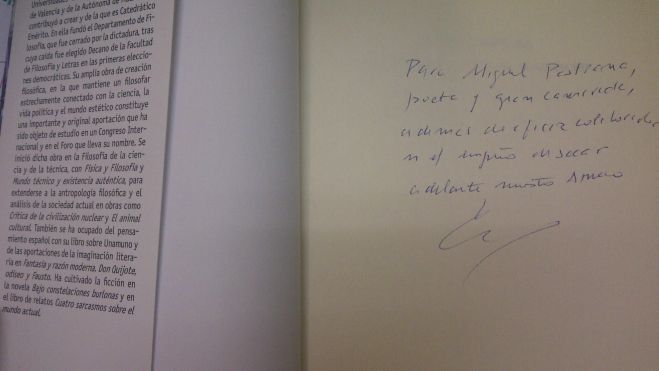 Universidades
de Valencia y de la Autónoma de
contribuyó a crear y de la que es Catedrático
Emérito. En ella fundó el Departamento de Fi-
losofía, que fue cerrado por la dictadura, tras
cuya caída fue elegido Decano de la Facultad
de Filosofía y Letras en las primeras eleccio-
nes democráticas. Su amplia obra de creación
filosófica, en la que mantiene un filosofar
estrechamente conectado con la ciencia, la
vida política y el mundo estético constituye
una importante y original aportación que ha
sido objeto de estudio en un Congreso Inter-
nacional y en el Foro que lleva su nombre. Se
inició dicha obra en la Filosofía de la cien-
cia y de la técnica, con Física y Filosofía y
Mundo técnico y existencia auténtica, para
extenderse a la antropología filosófica y el
análisis de la sociedad actual en obras como
Crítica de la civilización nuclear y El animal
cultural. También se ha ocupado del pensa-
miento español con su libro sobre Unamuno y
de las aportaciones de la imaginación litera-
ria en Fantasía y razón moderna. Don Quijote,
odiseo y Fausto. Ha cultivado la ficción en
la novela Bajo constelaciones burlonas y en
el libro de relatos Cuatro sarcasmos sobre el
mundo actual.
Para Miguel Pastrana,
poeta y gran camarada,
además de eficaz colaborador
en el empeño de sacar
adelante nuestro Ateneo